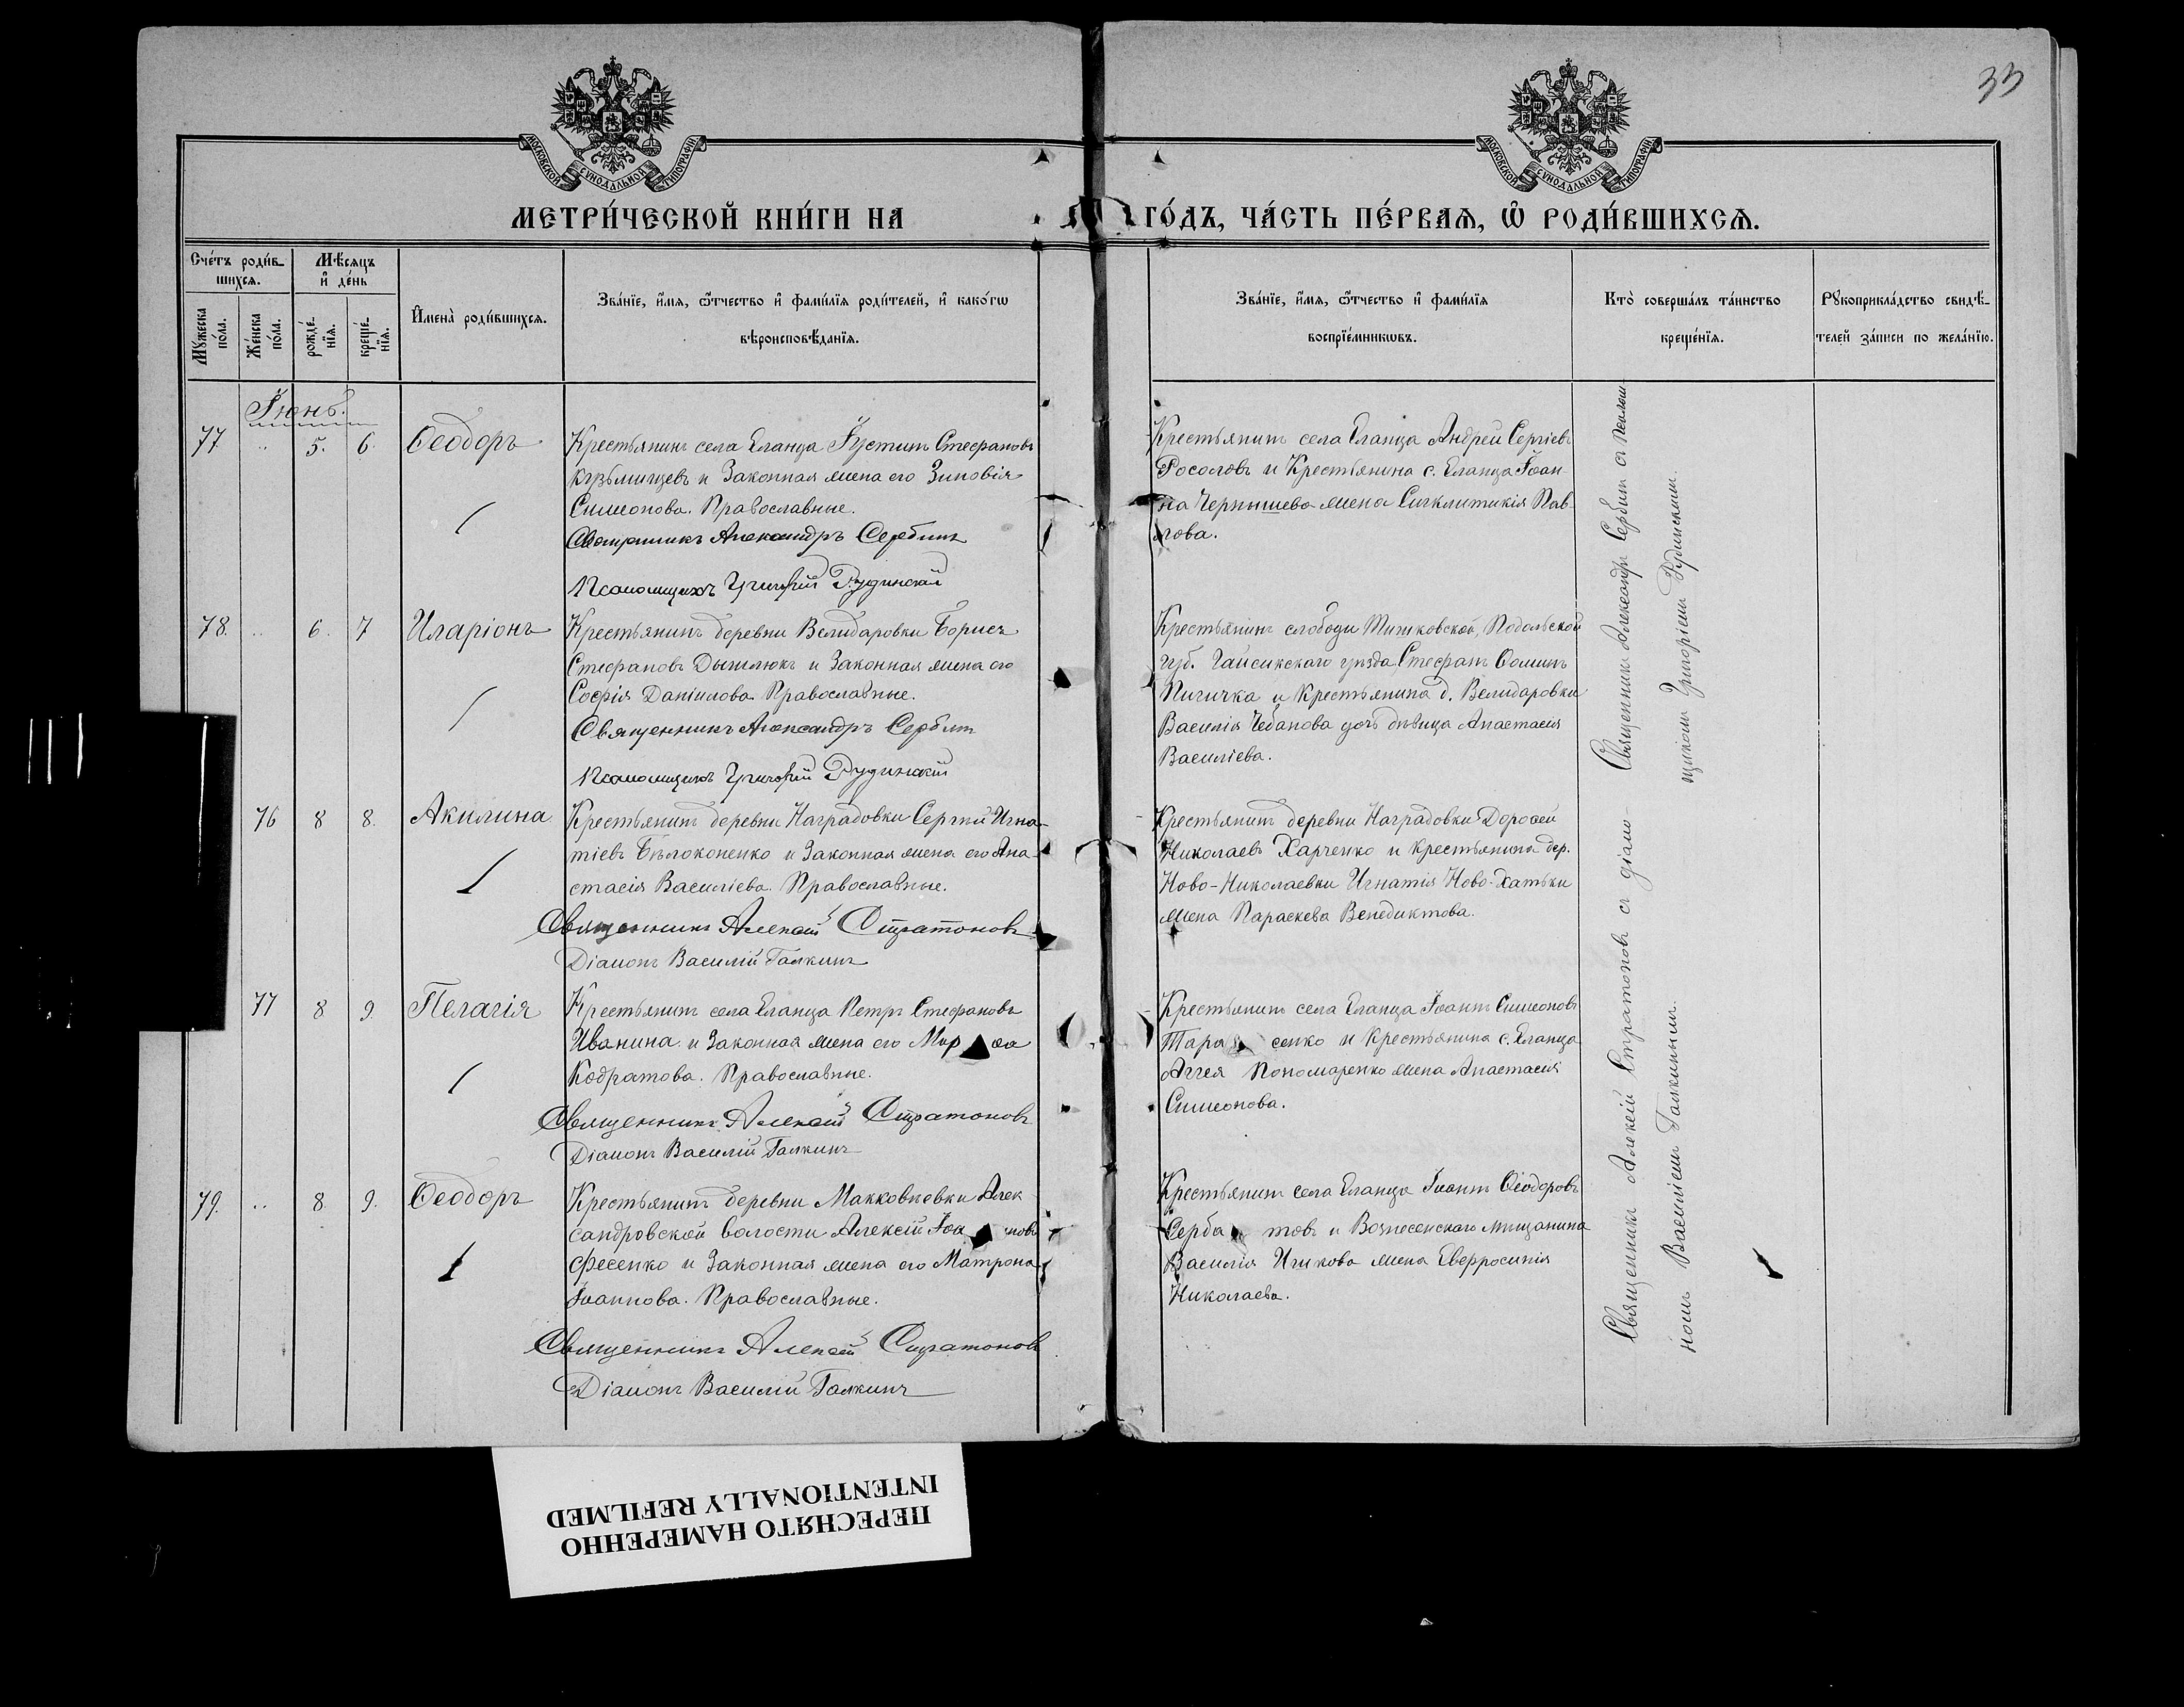 33
МОСКОВСКОЙ СѴНОДАЛЬНОЙ ТИПОГРАФІИ
МОСКОВСКОЙ СѴНОДАЛЬНОЙ ТИПОГРАФІИ
МЕТРИ́ЧЕСКОЙ КНИ́ГИ НА ГО́ДЪ, ЧА́СТЬ ПЕ́РВАѦ, Ѡ҆ РОДИ́ВШИХСѦ.
Сче́тъ роди́в-
шихсѧ.
Мѣ́сяцъ
и҆ де́нь
Мꙋ́жеска
по́ла.
Же́нска
по́ла.
рожде́-
нїѧ.
креще́-
нїѧ.
И҆мена̀ роди́вшихсѧ.
Зва́нїе, и҆́мѧ, ѻ҆́тчество и҆ фами́лїѧ роди́телей, и҆ како́гѡ
вѣроисповѣ́данїѧ.
Зва́нїе, и҆́мѧ, ѻ҆́тчество и҆ фами́лїѧ
воспрїе́мникѡвъ.
Кто̀ соверша́лъ та́инство
креще́нїѧ.
Рꙋкоприкла́дство свидѣ́-
телей за́писи по жела́нїю.
Іюнь.
77. .. 5. 6. Ѳеодоръ
Крестьянинъ села Еланца Іустинъ Стефановъ
Кузьминцевъ и Законная жена его Зиновія
Симеонова. Православные.
Священникъ Александръ Сербинъ
Псаломщикъ Григорій Рудинскій
Крестьянинъ села Еланца Андрей Сергіевъ
Росоловъ и Крестьянина с. Еланца Іоан-
на Чернышева жена Синклитикія Пав-
лова.
78. .. 6. 7 Иларіонъ
Крестьянинъ деревни Велидаровки Борисъ
Стефановъ Дышлюкъ и Законная жена его
Софія Даніилова. Православные.
Священникъ Александръ Сербинъ
Псаломщикъ Григорій Рудинскій
Крестьянинъ слободы Тишковской, Подольской
губ. Гайсинскаго уѣзда Стефанъ Ѳоминъ
Пигичка и Крестьянина д. Велидаровки
Василія Чебанова дочь дѣвица Анастасія
Василіева.
76 8 8. Акилина
Крестьянинъ деревни Наградовки Сергій Игна-
тіевъ Бѣлоконенко и Законная жена его Ана-
стасія Василіева. Православные.
Священникъ Алексій Стратоновъ
Діаконъ Василій Галкинъ
Крестьянинъ деревни Наградовки Доросей
Николаевъ Харченко и крестьянина дер.
Ново-Николаевки Игнатія Ново-Хатьки
жена Параскева Венедиктова.
77 8 9. Пелагія
Крестьянинъ села Еланца Петръ Стефановъ
Иванина и Законная жена его
Кодратова. Православные.
Священникъ Алексій Стратоновъ
Діаконъ Василій Галкинъ
Крестьянинъ села Еланца Іоаннъ Симеоновъ
Тара сенко и Крестьянина с. Еланца
Аггея Пономаренко жена Анастасія
Симеонова.
79. .. 8 9. Ѳеодоръ
Крестьянинъ деревни Макковѣевки Алек
сандровской волости Алексій Іоа новъ
Фесенко и Законная жена его Матрона
Іоаннова. Православные.
Священникъ Алексій Стратоновъ
Діаконъ Василій Галкинъ
Крестьянинъ села Еланца Іоаннъ Ѳеодоровъ
товъ и Вознесенскаго мѣщанина
Василія жена Евфросинія
Николаева.
Священникъ Александръ Сербинъ съ Псалом-
щикомъ Григоріемъ Рудинскимъ.
Священникъ Алексій Стратоновъ съ діако-
номъ Василіемъ Галкинымъ.
ПЕРЕСНЯТО НАМЕРЕННО
INTENTIONALLY REFILMED